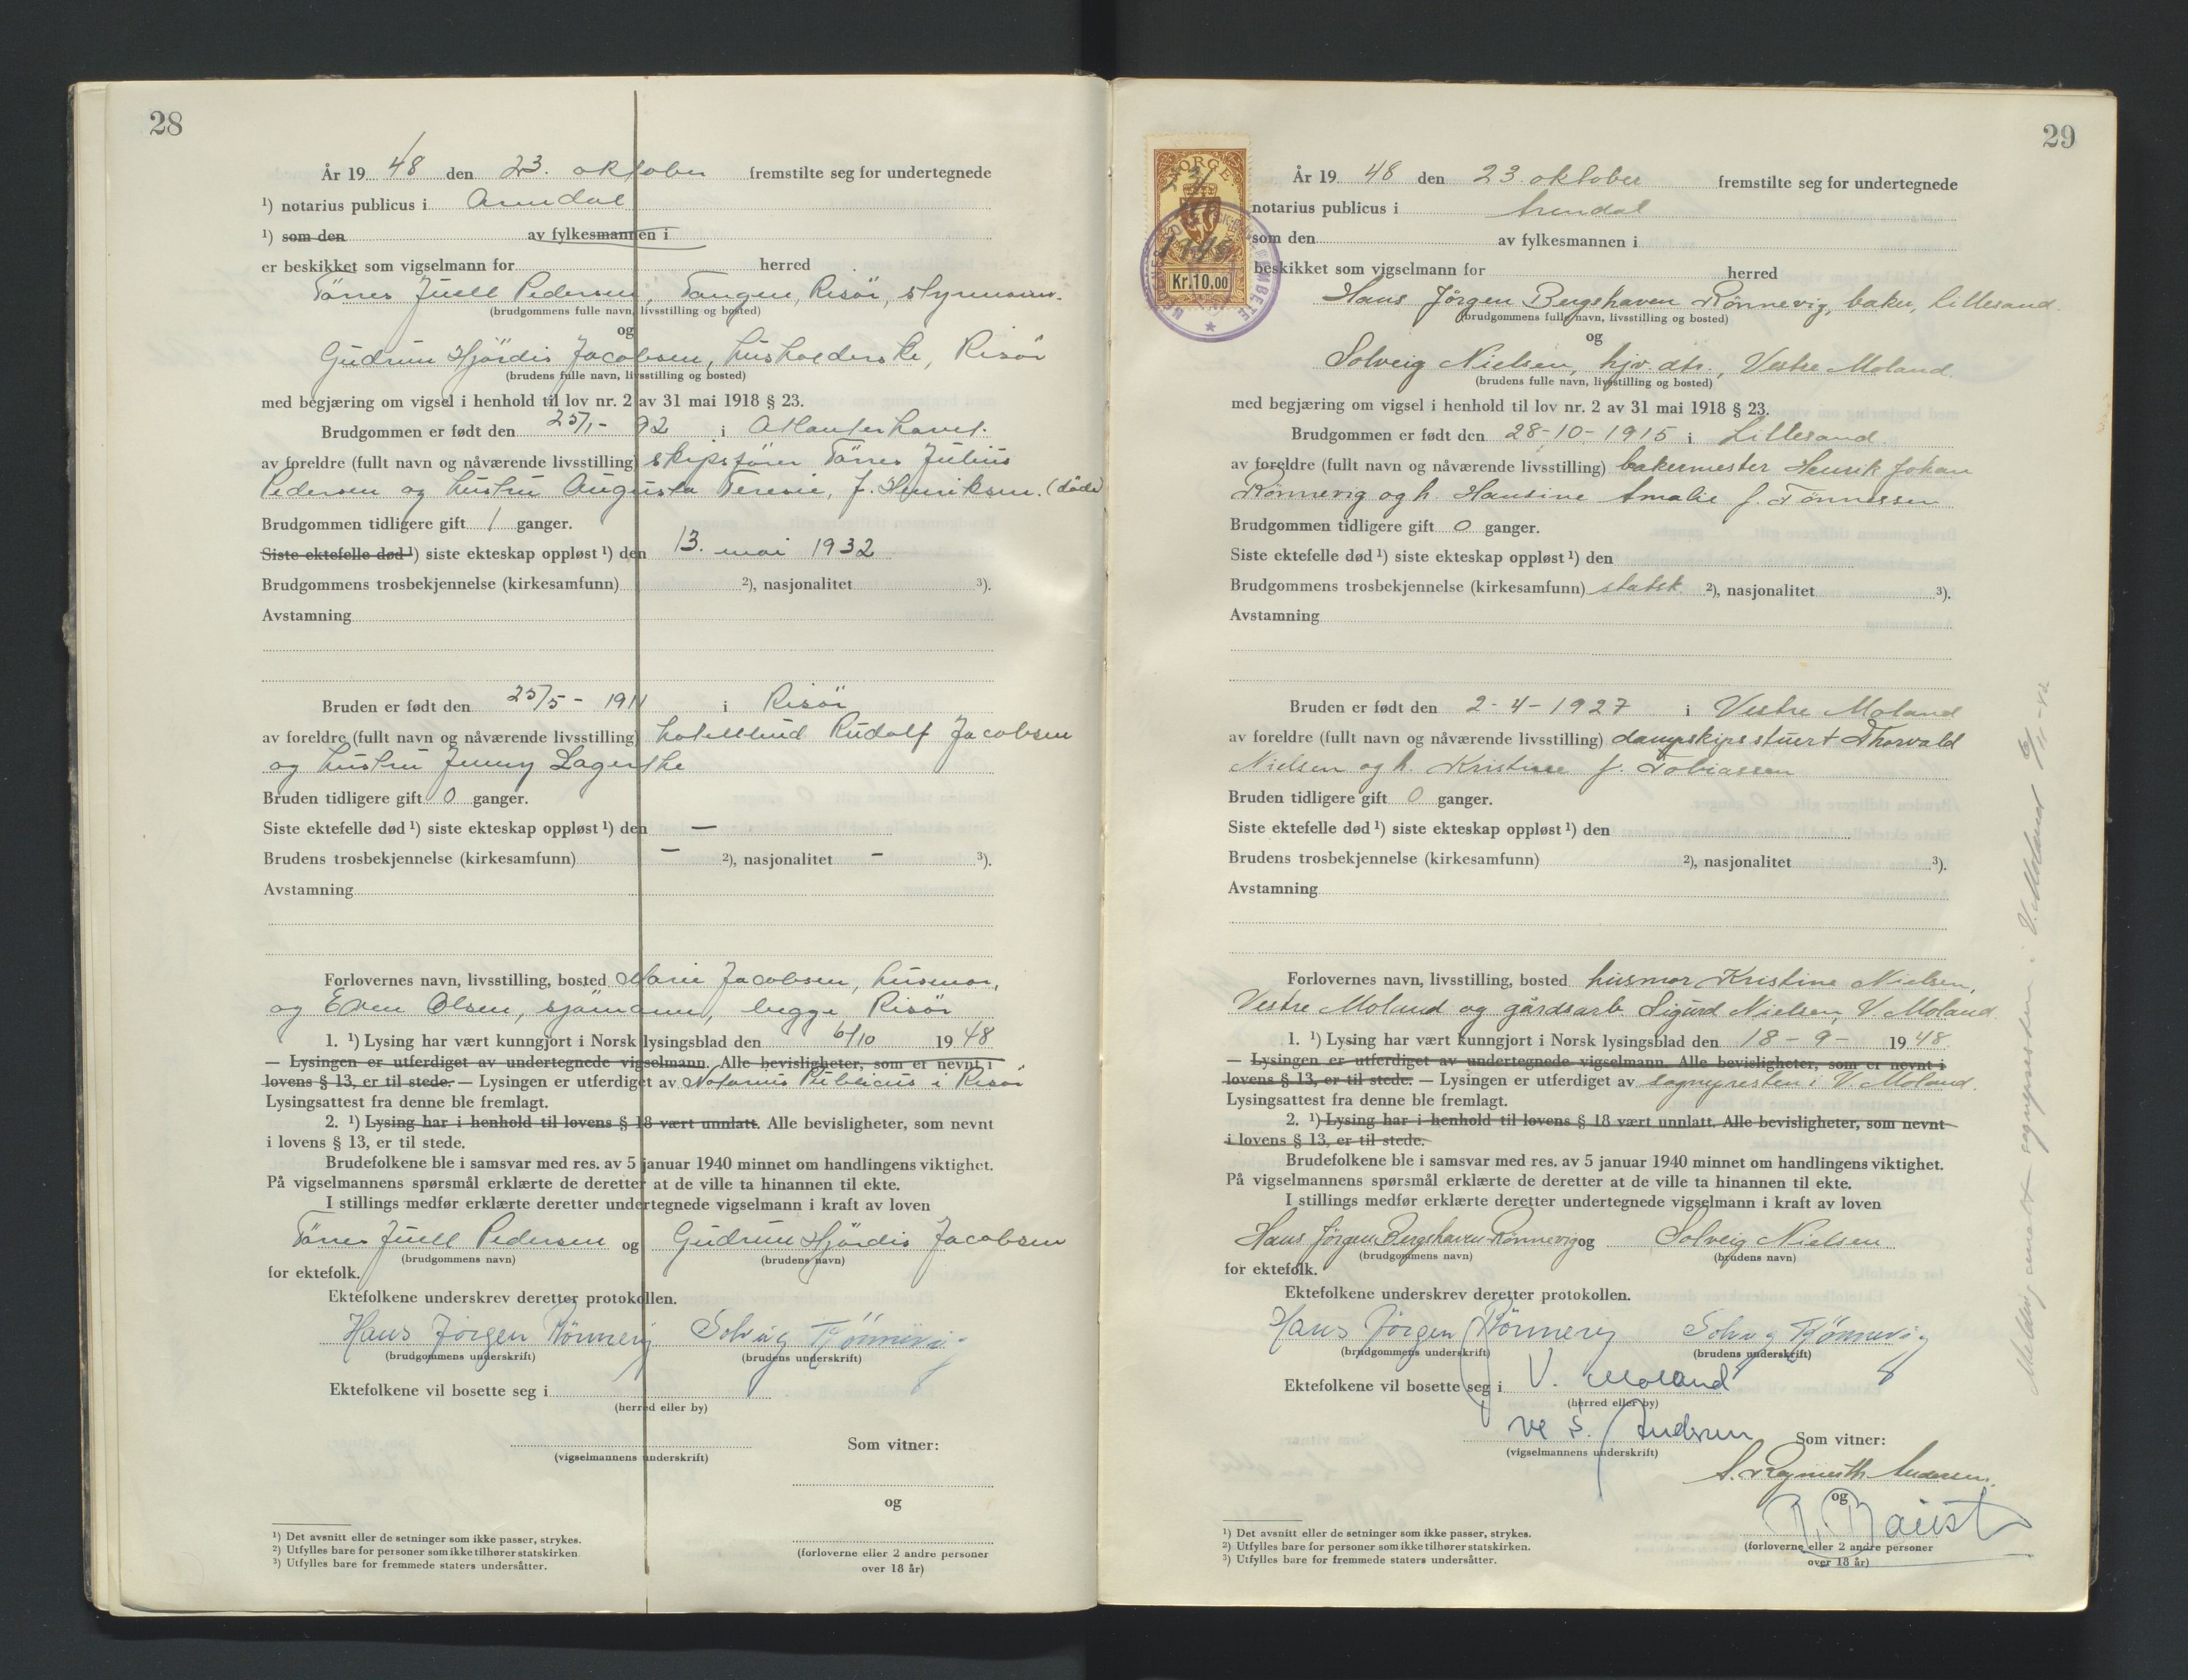 28
År 19 48 den 23. oktober fremstilte seg for undertegnede
¹) notarius publicus i Arendal
¹) som den av fylkesmannen i
er beskikket som vigselmann for herred
Tönnes Juell Pedersen, Tangen, Risör, styrmann.
(brudgommens fulle navn, livsstilling og bosted)
og
Gudrun Hjördis Jacobsen, husholderske, Risör
(brudens fulle navn, livsstilling og bosted)
med begjæring om vigsel i henhold til lov nr. 2 av 31 mai 1918 § 23.
Brudgommen er født den 25/1- 92 i Atlanterhavet.
av foreldre (fullt navn og nåværende livsstilling) skipsfører Tönnes Julius
Pedersen og hustru Augusta Teresie, f. Henriksen. (døde)
Brudgommen tidligere gift 1 ganger.
Siste ektefelle død ¹) siste ekteskap oppløst ¹) den 13. mai 1932
Brudgommens trosbekjennelse (kirkesamfunn) ²), nasjonalitet ³).
Avstamning
Bruden er født den 25/5 - 1911 i Risör
av foreldre (fullt navn og nåværende livsstilling) hotellbud Rudolf Jacobsen
og hustru Jenny Lagerthe
Bruden tidligere gift 0 ganger.
Siste ektefelle død ¹) siste ekteskap oppløst ¹) den —
Brudens trosbekjennelse (kirkesamfunn) - ²), nasjonalitet - ³).
Avstamning
Forlovernes navn, livsstilling, bosted Marie Jacobsen, husmor,
og Even Olsen, sjömann, begge Risör
1. ¹) Lysing har vært kunngjort i Norsk lysingsblad den 6/10 19 48
— Lysingen er utferdiget av undertegnede vigselmann. Alle bevisligheter, som er nevnt i
lovens § 13, er til stede. — Lysingen er utferdiget av Notarius Publicus i Risör
Lysingsattest fra denne ble fremlagt.
2. ¹) Lysing har i henhold til lovens § 18 vært unnlatt. Alle bevisligheter, som nevnt
i lovens § 13, er til stede.
Brudefolkene ble i samsvar med res. av 5 januar 1940 minnet om handlingens viktighet.
På vigselmannens spørsmål erklærte de deretter at de ville ta hinannen til ekte.
I stillings medfør erklærte deretter undertegnede vigselmann i kraft av loven
Tönnes Juell Pedersen og Gudrun Hjördis Jacobsen
(brudgommens navn) (brudens navn)
for ektefolk.
Ektefolkene underskrev deretter protokollen.
Hans Jörgen Rönnevig Solveig Rönnevig
(brudgommens underskrift) (brudens underskrift)
Ektefolkene vil bosette seg i
(herred eller by)
Som vitner:
(vigselmannens underskrift)
og
¹) Det avsnitt eller de setninger som ikke passer, strykes.
²) Utfylles bare for personer som ikke tilhører statskirken.
³) Utfylles bare for fremmede staters undersåtter.
(forloverne eller 2 andre personer
over 18 år)
29
NORGE
Kr. 10.00
År 19 48 den 23. oktober fremstilte seg for undertegnede
notarius publicus i Arendal
som den av fylkesmannen i
beskikket som vigselmann for herred
Hans Jörgen Bergshaven Rönnevig, baker, Lillesand.
(brudgommens fulle navn, livsstilling og bosted)
og
Solveig Nielsen, hjv. dtr., Vestre Moland.
(brudens fulle navn, livsstilling og bosted)
med begjæring om vigsel i henhold til lov nr. 2 av 31 mai 1918 § 23.
Brudgommen er født den 28-10-1915 i Lillesand.
av foreldre (fullt navn og nåværende livsstilling) bakermester Henrik Johan
Rönnevig og h. Hansine Amalie f. Tönnessen
Brudgommen tidligere gift 0 ganger.
Siste ektefelle død ¹) siste ekteskap oppløst ¹) den
Brudgommens trosbekjennelse (kirkesamfunn) statsk. ²), nasjonalitet ³).
Avstamning
Bruden er født den 2-4-1927 i Vestre Moland
av foreldre (fullt navn og nåværende livsstilling) dampskipsstuert Thorvald
Nielsen og h. Kristine f. Tobiassen
Bruden tidligere gift 0 ganger.
Siste ektefelle død ¹) siste ekteskap oppløst ¹) den
Brudens trosbekjennelse (kirkesamfunn) ²), nasjonalitet ³).
Avstamning
Forlovernes navn, livsstilling, bosted husmor Kristine Nielsen,
Vestre Moland og gårdsarb. Sigurd Nielsen, V. Moland.
1. ¹) Lysing har vært kunngjort i Norsk lysingsblad den 18 - 9 - 19 48.
— Lysingen er utferdiget av undertegnede vigselmann. Alle bevisligheter, som er nevnt i
lovens § 13, er til stede. — Lysingen er utferdiget av sognepresten i V. Moland.
Lysingsattest fra denne ble fremlagt.
2. ¹) Lysing har i henhold til lovens § 18 vært unnlatt. Alle bevisligheter, som nevnt
i lovens § 13, er til stede.
Brudefolkene ble i samsvar med res. av 5 januar 1940 minnet om handlingens viktighet.
På vigselmannens spørsmål erklærte de deretter at de ville ta hinannen til ekte.
I stillings medfør erklærte deretter undertegnede vigselmann i kraft av loven
Hans Jörgen Bergshaven Rönnevig og Solveig Nielsen
(brudgommens navn) (brudens navn)
for ektefolk.
Ektefolkene underskrev deretter protokollen.
Hans Jörgen Rönnevig Solveig Rönnevig
(brudgommens underskrift) (brudens underskrift)
Ektefolkene vil bosette seg i V. Moland
(herred eller by)
Andersen Som vitner:
(vigselmannens underskrift)
Andersen
og
¹) Det avsnitt eller de setninger som ikke passer, strykes.
²) Utfylles bare for personer som ikke tilhører statskirken.
³) Utfylles bare for fremmede staters undersåtter.
(forloverne eller 2 andre personer
over 18 år)
Melding sendt sognepresten i V. Moland